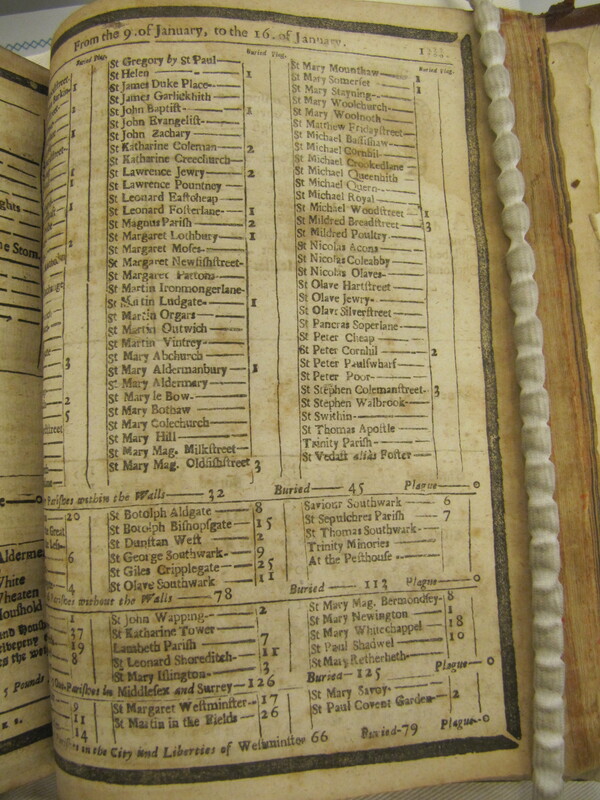 From the 9. of January, to the 16. of January.
Buried Plag.
St Gregory by St Paul
St Helen 1
St James Duke Place
St James Garlickhith
St John Baptiſt 1
St John Evangeliſt
St John Zachary
St Katharine Coleman 2
St Katharine Creechurch
St Lawrence Jewry 2
St Lawrence Pountney
St Leonard Eaſtcheap
St Leonard Foſterlane 1
St Magnus Pariſh 2
St Margaret Lothbury 1
St Margaret Moſes
St Margaret Newfiſhſtreet
St Margaret Pattons
St Martin Ironmongerlane
St Martin Ludgate 1
St Martin Orgars
St Martin Outwich
St Martin Vintrey
St Mary Abchurch
St Mary Aldermanbury 1
St Mary Aldermary
St Mary le Bow
St Mary Bothaw
St Mary Colechurch
St Mary Hill
St Mary Mag. Milkſtreet
St Mary Mag. Oldfiſhſtreet 3
Buried Plag.
St Mary Mounthaw
St Mary Somerſet 1
St Mary Stayning 1
St Mary Woolchurch
St Mary Woolnoth
St Matthew Fridayſtreet
St Michael Baſſiſhaw
St Michael Cornhil
St Michael Crookedlane
St Michael Queenhith
St Michael Quern
St Michael Royal
St Michael Woodſtreet 1
St Mildred Breadſtreet 3
St Mildred Poultry
St Nicolas Acons
St Nicolas Coleabby
St Nicolas Olaves
St Olave Hartſtreet
St Olave Jewry
St Olave Silverſtreet
St Pancras Soperlane
St Peter Cheap
St Peter Cornhil 2
St Peter Paulſwharf
St Peter Poor
St Stephen Colemanſtreet 3
St Stephen Walbrook
St Swithin
St Thomas Apoſtle
Trinity Pariſh
St Vedaſt alias Foſter
Pariſhes within the Walls 32 Buried 45 Plague 0
St Botolph Aldgate 8
St Botolph Biſhopſgate 15
St Dunſtan Weſt 2
St George Southwark 9
St Giles Cripplegate 25
St Olave Southwark 11
Saviour Southwark 6
St Sepulchres Pariſh 7
St Thomas Southwark
Trinity Minories
At the Peſthouſe
Pariſhes without the Walls 78 Buried 112 Plague 0
St John Wapping 2
St Katharine Tower
Lambeth Pariſh 7
St Leonard Shoreditch 11
St Mary Iſlington 3
St Mary Mag. Bermondſey 8
St Mary Newington 1
St Mary Whitechappel 18
St Paul Shadwel 10
St Mary Retherheth
Pariſhes in Middleſex and Surrey 126 Buried 125 Plague 0
St Margaret Weſtminſter 17
St Martin in the Fields 26
St Mary Savoy
St Paul Covent Garden 2
in the City and Liberties of Weſtminſter 66 Buried 79 Plague 0